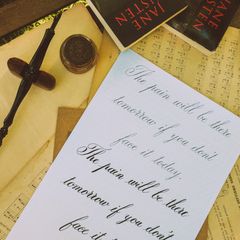 JANE
AUSTEN
JANE
AUSTEN
The pain will be there
tomorrow if you don't
face it today
The pain will be there
tomorrow if you don't
face it